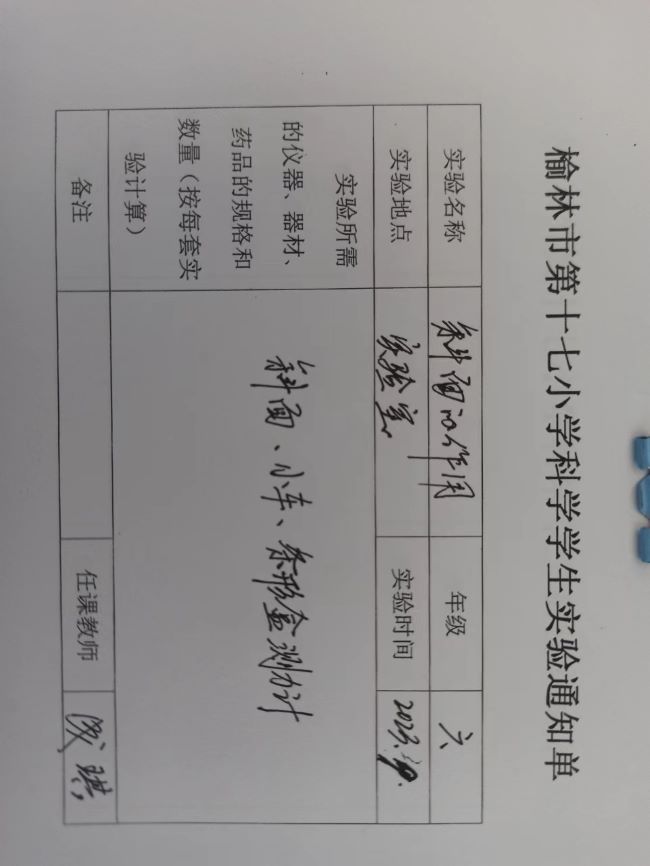 榆林市第十七小学科学学生实验通知单
实验名称 斜面的作用 年级 六
实验地点 实验室 实验时间 2023.
实验所需
的仪器、器材、
药品的规格和
数量（按每套实
验计算）
斜面、小车、条形盒测力计
备注 任课教师 琪